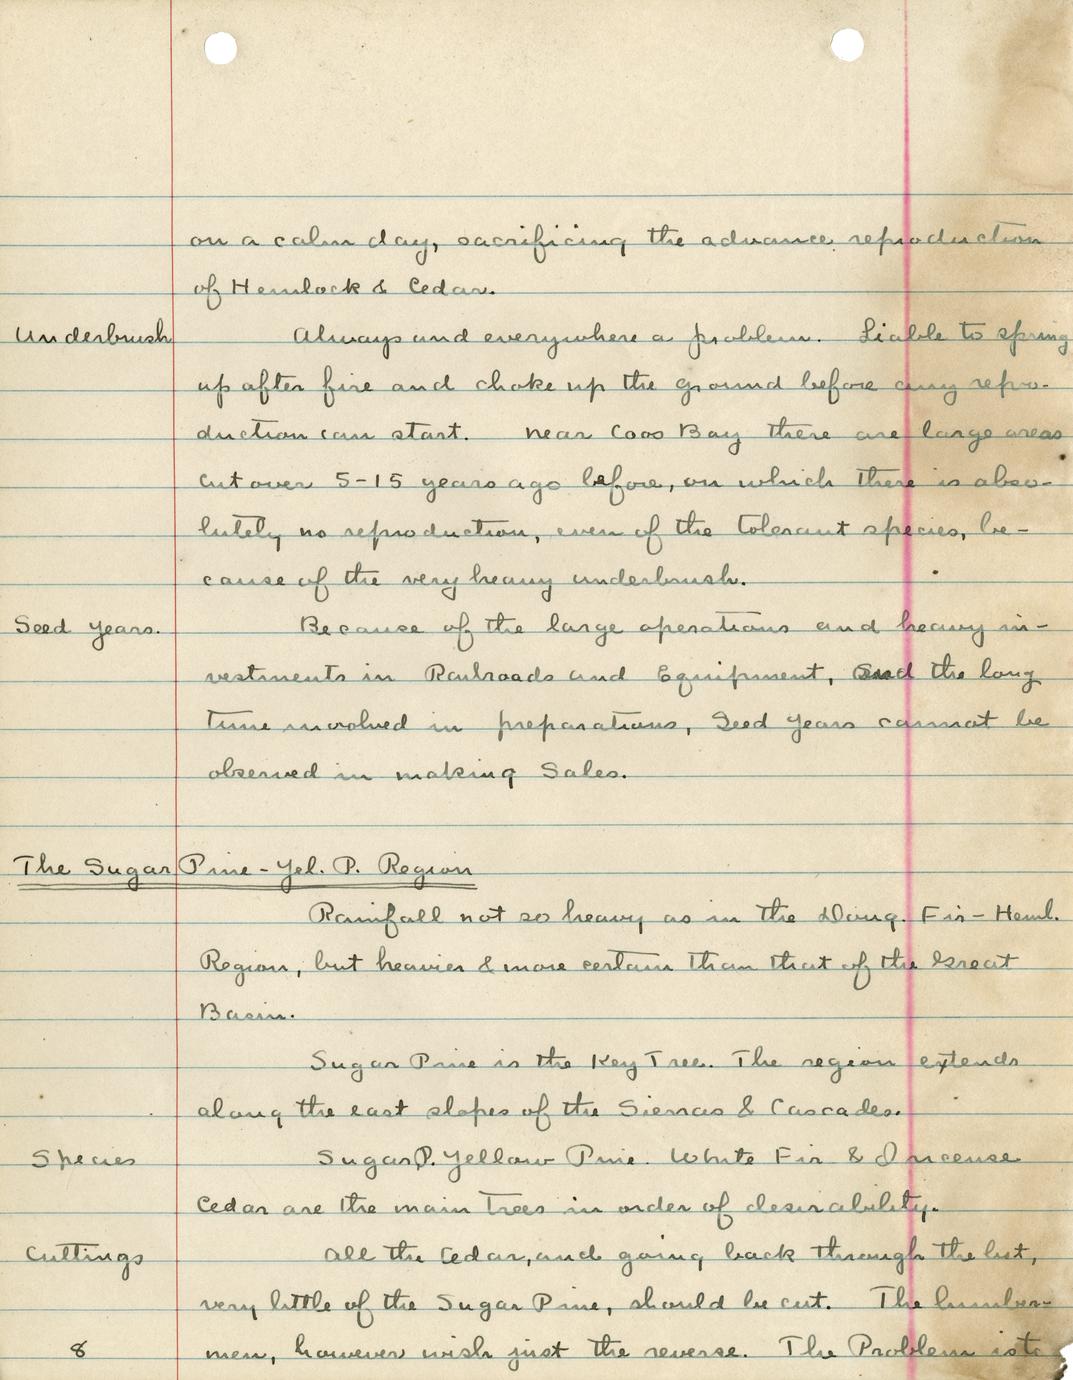 on a calm day, sacrificing the advance reproduction
of Hemlock & Cedar.
Underbrush Always and everywhere a problem. Liable to spring
up after fire and choke up the ground before any repro-
duction can start. Near Coos Bay there are large areas
cut over 5-15 years ago before, on which there is abso-
lutely no reproduction, even of the tolerant species, be-
cause of the very heavy underbrush.
Seed Years. Because of the large operations and heavy in-
vestments in Railroads and Equipment, and the long
time involved in preparations, Seed Years cannot be
observed in making Sales.
The Sugar Pine - Yel. P. Region
Rainfall not so heavy as in the Doug. Fir - Heml.
Region, but heavier & more certain than that of the Great
Basin.
Sugar Pine is the Key Tree. The region extends
along the east slopes of the Sierras & Cascades.
Species Sugar P. Yellow Pine. White Fir & Incense
Cedar are the main trees in order of desirability.
Cuttings All the Cedar, and going back through the list,
very little of the Sugar Pine, should be cut. The lumber-
8 men, however wish just the reverse. The Problem is to